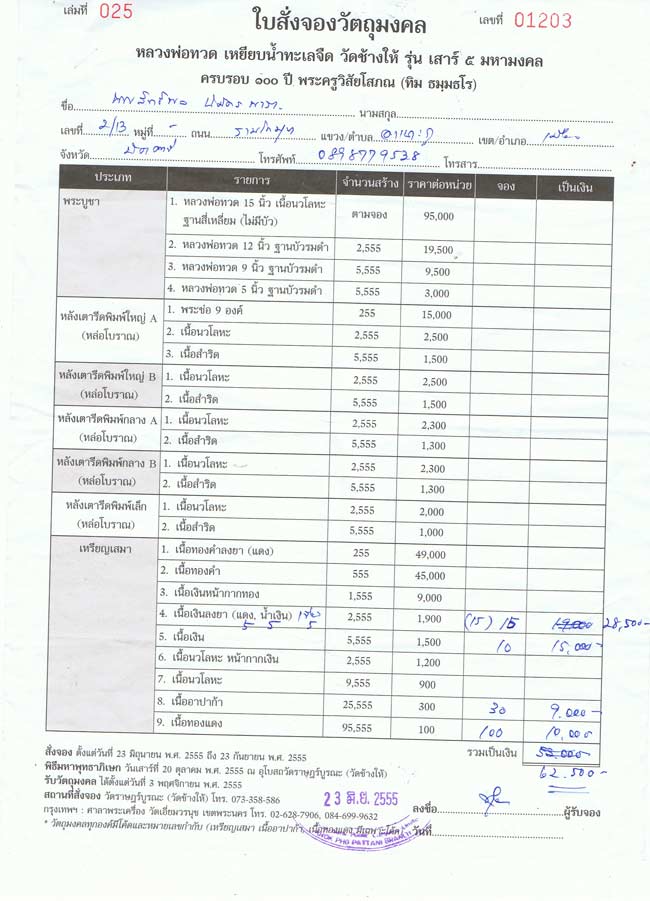 เล่มที่ 025
ใบสั่งจองวัตถุมงคล
เลขที่ 01203
หลวงพ่อทวด เหยียบน้ำทะเลจืด วัดช้างให้ รุ่น เสาร์ ๕ มหามงคล
ครบรอบ ๑๐๐ ปี พระครูวิสัยโสภณ (ทิม ธมฺมธโร)
ชื่อ นามสกุล
เลขที่ 2/13 หมู่ที่ - ถนน แขวง/ตำบล เขต/อำเภอ
จังหวัด โทรศัพท์ 0898779538 โทรสาร
ประเภท รายการ จำนวนสร้าง ราคาต่อหน่วย จอง เป็นเงิน
พระบูชา 1. หลวงพ่อทวด 15 นิ้ว เนื้อนวโลหะ
ฐานสี่เหลี่ยม (ไม่มีบัว) ตามจอง 95,000
2. หลวงพ่อทวด 12 นิ้ว ฐานบัวรมดำ 2,555 19,500
3. หลวงพ่อทวด 9 นิ้ว ฐานบัวรมดำ 5,555 9,500
4. หลวงพ่อทวด 5 นิ้ว ฐานบัวรมดำ 5,555 3,000
หลังเตารีดพิมพ์ใหญ่ A (หล่อโบราณ) 1. พระช่อ 9 องค์ 255 15,000
2. เนื้อนวโลหะ 2,555 2,500
3. เนื้อสำริด 5,555 1,500
หลังเตารีดพิมพ์ใหญ่ B (หล่อโบราณ) 1. เนื้อนวโลหะ 2,555 2,500
2. เนื้อสำริด 5,555 1,500
หลังเตารีดพิมพ์กลาง A (หล่อโบราณ) 1. เนื้อนวโลหะ 2,555 2,300
2. เนื้อสำริด 5,555 1,300
หลังเตารีดพิมพ์กลาง B (หล่อโบราณ) 1. เนื้อนวโลหะ 2,555 2,300
2. เนื้อสำริด 5,555 1,300
หลังเตารีดพิมพ์เล็ก (หล่อโบราณ) 1. เนื้อนวโลหะ 2,555 2,000
2. เนื้อสำริด 5,555 1,000
เหรียญเสมา 1. เนื้อทองคำลงยา (แดง) 255 49,000
2. เนื้อทองคำ 555 45,000
3. เนื้อเงินหน้ากากทอง 1,555 9,000
4. เนื้อเงินลงยา (แดง, น้ำเงิน) 2,555 1,900 (15) 15 19,000 28,500-
5 5 5
5. เนื้อเงิน 5,555 1,500 10 15,000-
6. เนื้อนวโลหะ หน้ากากเงิน 2,555 1,200
7. เนื้อนวโลหะ 9,555 900
8. เนื้ออาปาก้า 25,555 300 30 9,000-
9. เนื้อทองแดง 95,555 100 100 10,000
สั่งจอง ตั้งแต่วันที่ 23 มิถุนายน พ.ศ. 2555 ถึง 23 กันยายน พ.ศ. 2555 รวมเป็นเงิน 53,000-
พิธีมหาพุทธาภิเษก วันเสาร์ที่ 20 ตุลาคม พ.ศ. 2555 ณ อุโบสถวัดราษฎร์บูรณะ (วัดช้างให้) 62,500-
รับวัตถุมงคล ได้ตั้งแต่วันที่ 3 พฤศจิกายน พ.ศ. 2555
สถานที่สั่งจอง วัดราษฎร์บูรณะ (วัดช้างให้) โทร. 073-358-586
23 มิ.ย. 2555
ลงชื่อ ผู้รับจอง
กรุงเทพฯ : ศาลาพระเครื่อง วัดเอี่ยมวรนุช เขตพระนคร โทร. 02-628-7906, 084-699-9632
* วัตถุมงคลทุกองค์มีโค้ดและหมายเลขกำกับ (เหรียญเสมา เนื้ออาปาก้า, เนื้อทองแดง มีเฉพาะโค้ด) วันที่
PATTANI BRANCH